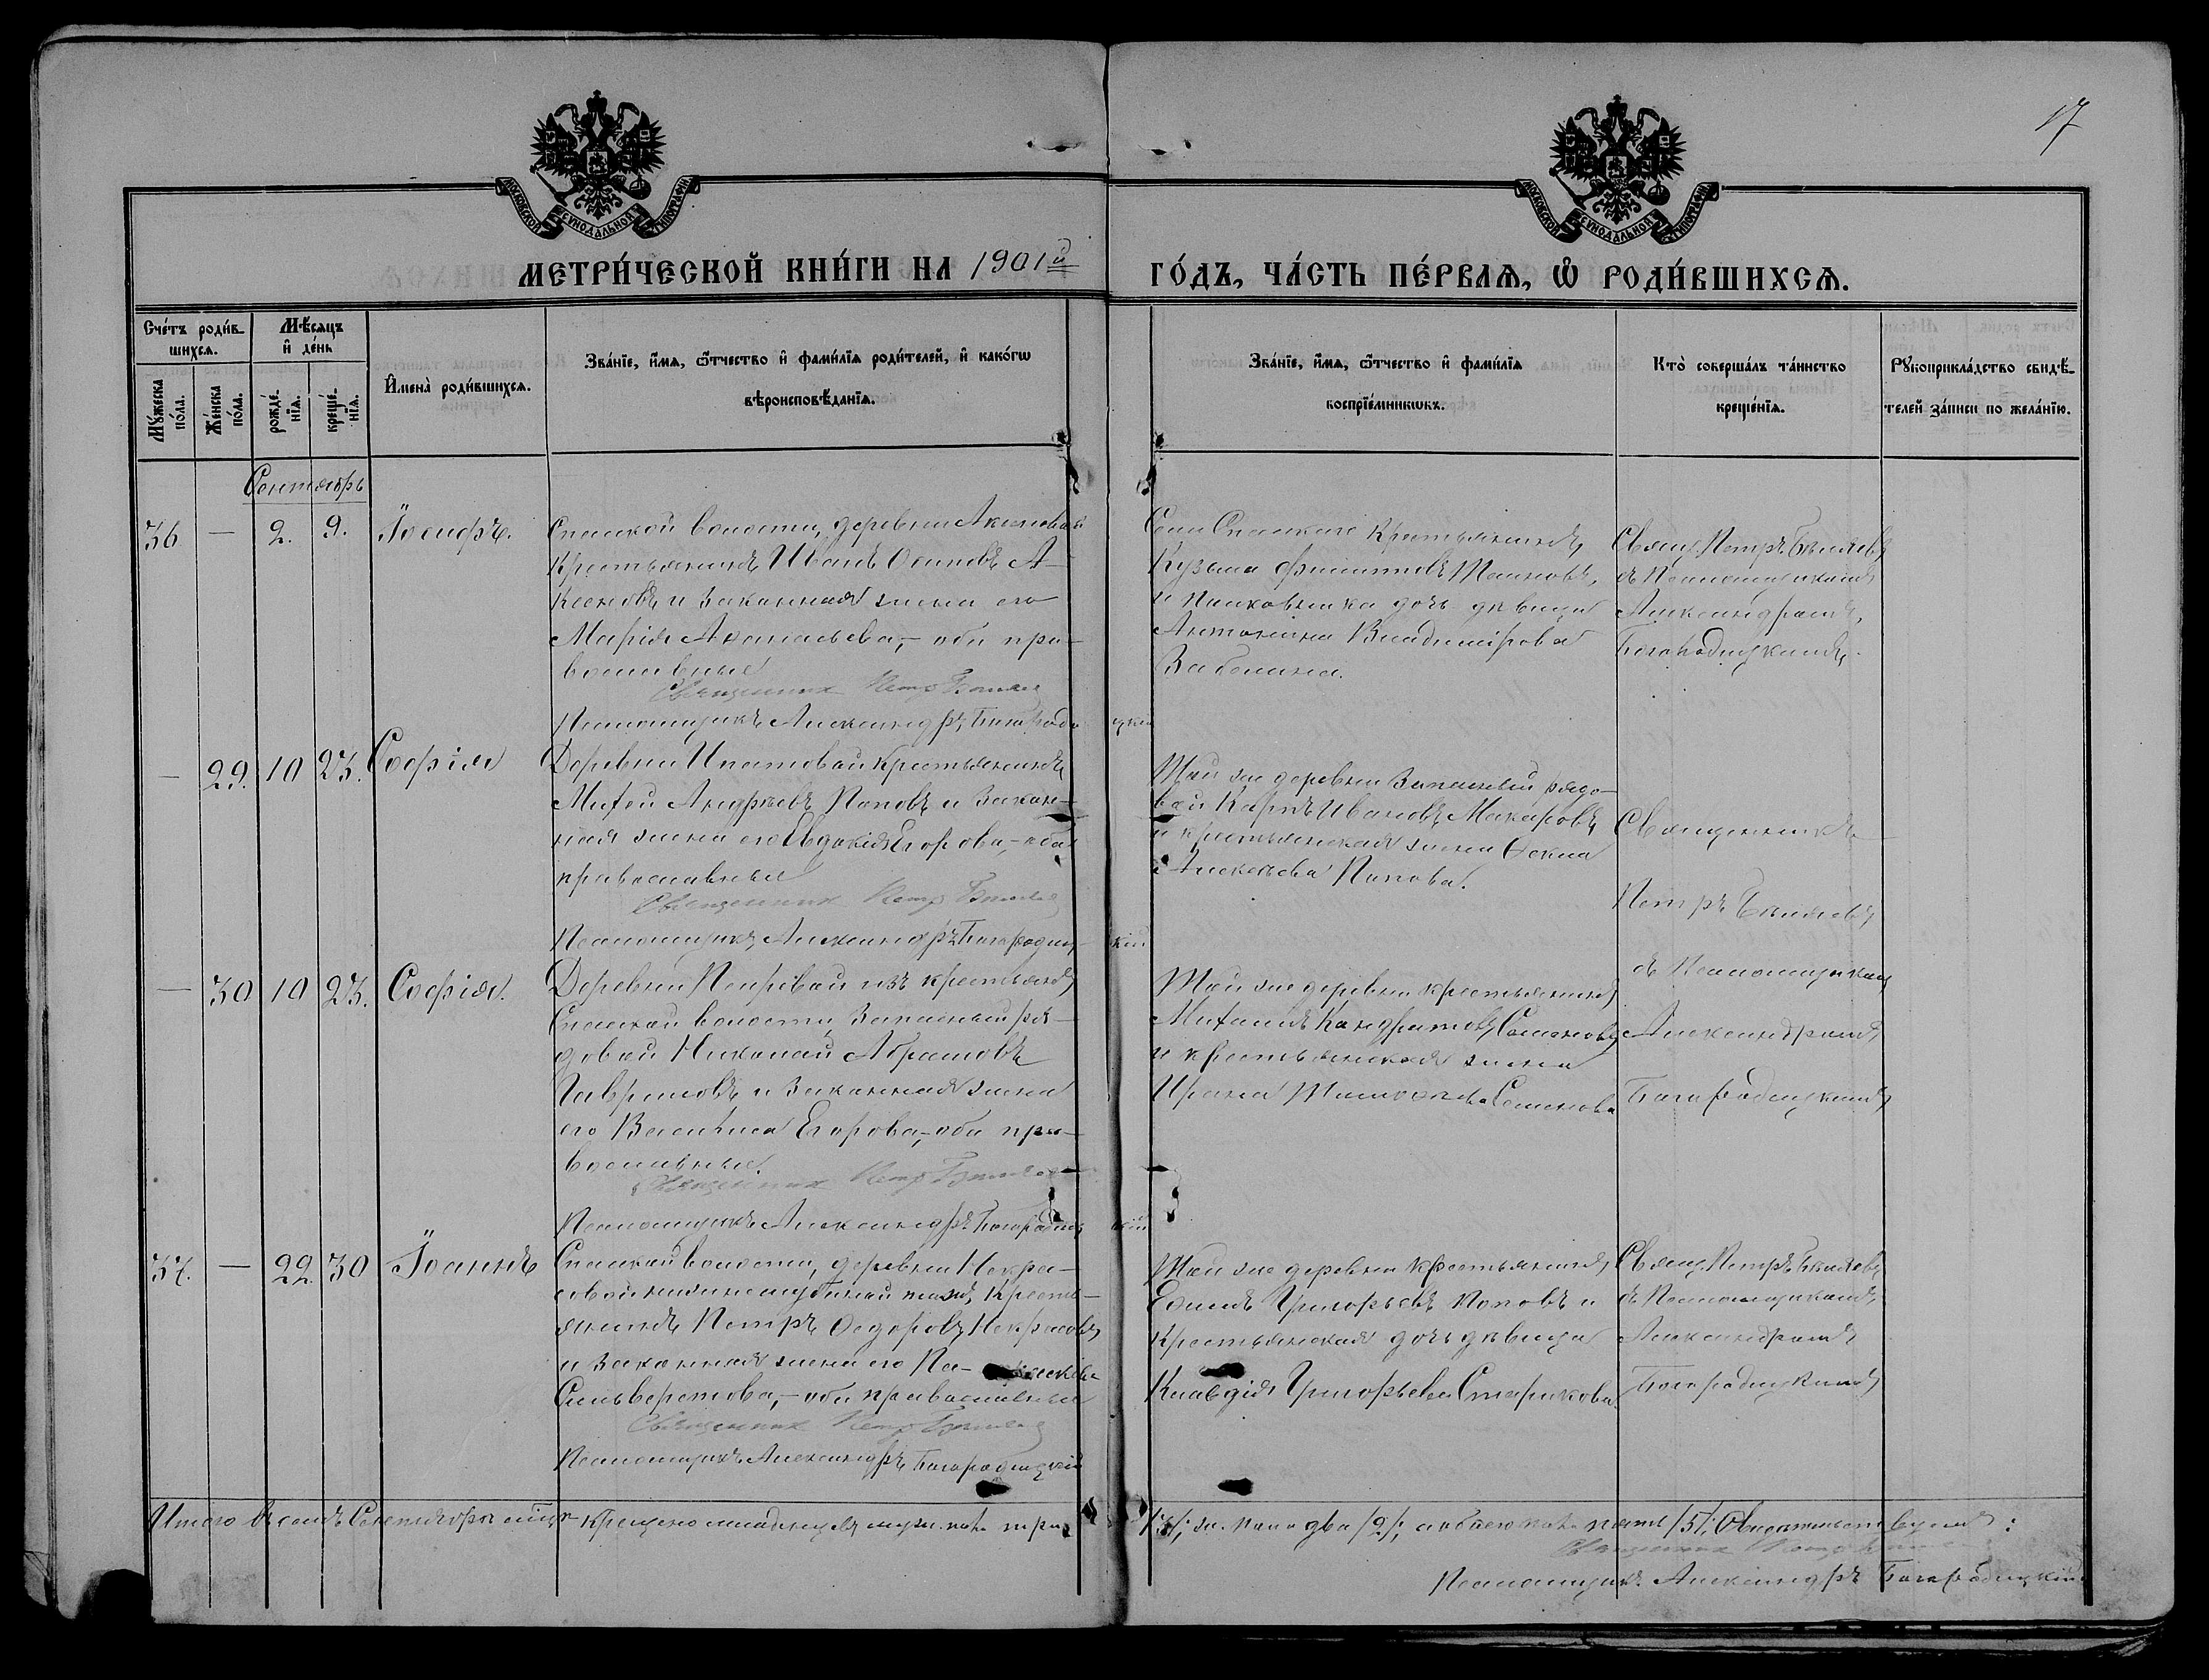 17
МОСКОВСКОЙ СѴНОДАЛЬНОЙ ТИПОГРАФІИ
МОСКОВСКОЙ СѴНОДАЛЬНОЙ ТИПОГРАФІИ
МЕТРИ́ЧЕСКОЙ КНИ́ГИ НА 1901й ГО́ДЪ, ЧА́СТЬ ПЕ́РВАѦ, Ѡ҆ РОДИ́ВШИХСѦ.
Сче́тъ роди́в-
шихсѧ.
Мѣ́сѧцъ
и҆ де́нь
Мꙋ́жеска по́ла.
Же́нска по́ла.
рожде́-нїѧ.
креще́-нїѧ.
И҆мена̀ роди́вшихсѧ.
Зва́нїе, и҆́мѧ, ѻ҆́тчество и҆ фами́лїѧ роди́телей, и҆ како́гѡ
вѣроисповѣ́данїѧ.
Зва́нїе, и҆́мѧ, ѻ҆́тчество и҆ фами́лїѧ
воспрїе́мникѡвъ.
Кто̀ соверша́лъ та́инство
креще́нїѧ.
Рꙋкоприкла́дство свидѣ́-
телей за́писи по жела́нїю.
Сентябрь
36 — 2. 9. Іосифъ.
Спасской волости, деревни Аксеновой
Крестьянинъ Иванъ Осиповъ А-
ксеновъ и законная жена его
Марія Аѳанасьева, – оба пра-
вославные
Священникъ Петръ Бѣляевъ
Псаломщикъ Александръ Богородицкій
Села Спасскаго Крестьянинъ
Кузьма Филипповъ
и дочь дѣвица
Антонина Владимірова
Заболина.
Свящ. Петръ Бѣляевъ
съ Псаломщикомъ
Александромъ
Богородицкимъ.
— 29. 10 23. Софія
Деревни Ипатовой Крестьянинъ
Михей Андреевъ Поповъ и закон-
ная жена его Евдокія Егорова, – оба
православные
Священникъ Петръ Бѣляевъ
Псаломщикъ Александръ Богородицкій
Той же деревни Запасный рядо-
вой Карпъ Ивановъ Макаровъ
и крестьянская жена Ѳекла
Алексѣева Попова.
Священникъ
Петръ Бѣляевъ
съ Псаломщикомъ
Александромъ
Богородицкимъ
— 30 10 23. Софія.
Деревни изъ крестьянъ
Спасской волости, Запасный ря-
довой Николай Абрамовъ
Гавриловъ и законная жена
его Василиса Егорова, – оба пра-
вославные.
Священникъ Петръ Бѣляевъ
Псаломщикъ Александръ Богородицкій
Той же деревни крестьянинъ
Михаилъ Кондратовъ Семеновъ
и крестьянская жена
Ирина Тимоѳеева Семенова
37. — 22. 30 Іоаннъ
Спасской волости, деревни Некра-
совой Кресть-
янинъ Петръ Ѳедоровъ Некрасовъ
и законная жена его Па-раскева
Сильверстова, – оба православные
Священникъ Петръ Бѣляевъ
Псаломщикъ Александръ Богородицкій
Той же деревни крестьянинъ
Ефимъ Григорьевъ Поповъ и
Крестьянская дочь дѣвица
Клавдія Григорьева Старикова.
Свящ. Петръ Бѣляевъ
съ Псаломщикомъ
Александромъ
Богородицкимъ
Итого въ семъ Сентябрѣ мѣсяцѣ крещено младенцевъ муж. пола три /3/; ж. пола два /2/; а обоего пола пять /5/; Свидѣтельствуемъ:
Священникъ Петръ Бѣляевъ
Псаломщикъ Александръ Богородицкій